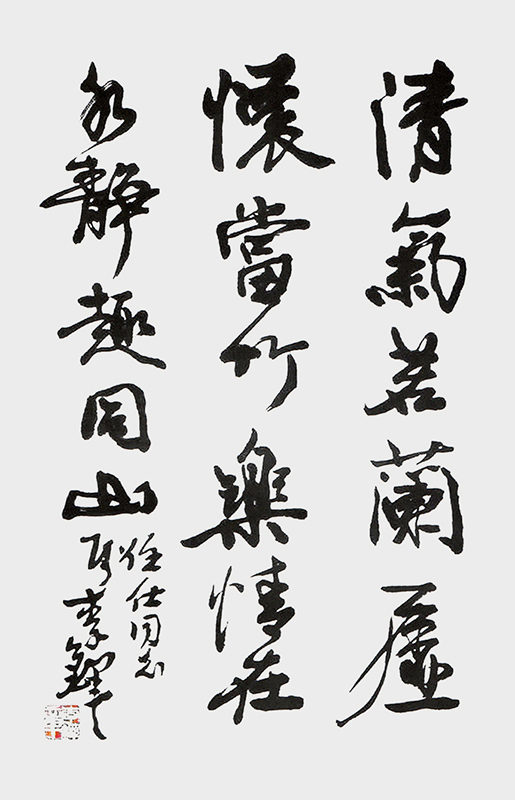 清氣若蘭虛
懷當竹樂情在
水靜趣同山
任仕同志
李鐸